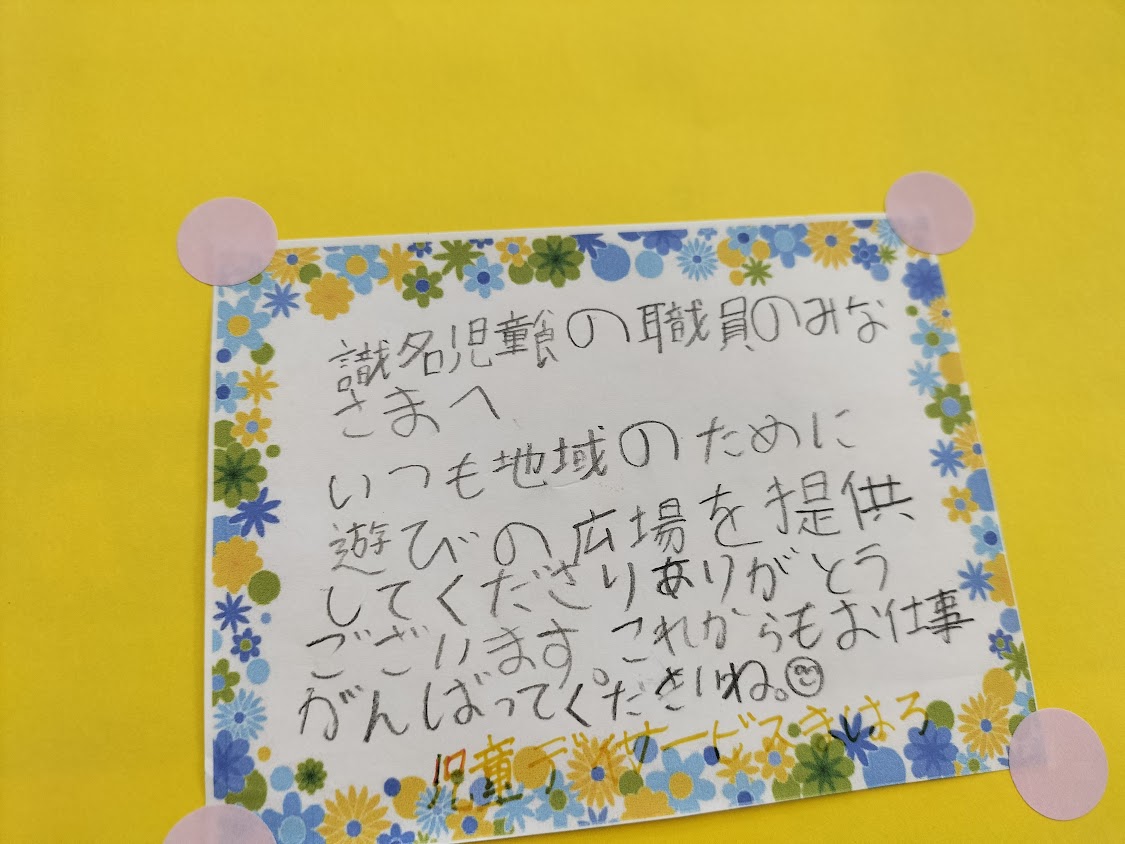 識名児童館の職員のみな
さまへ
いつも地域のために
遊びの広場を提供
してくださりありがとう
ございます。これからもお仕事
がんばってくださいね。
児童デイサービスきはろ